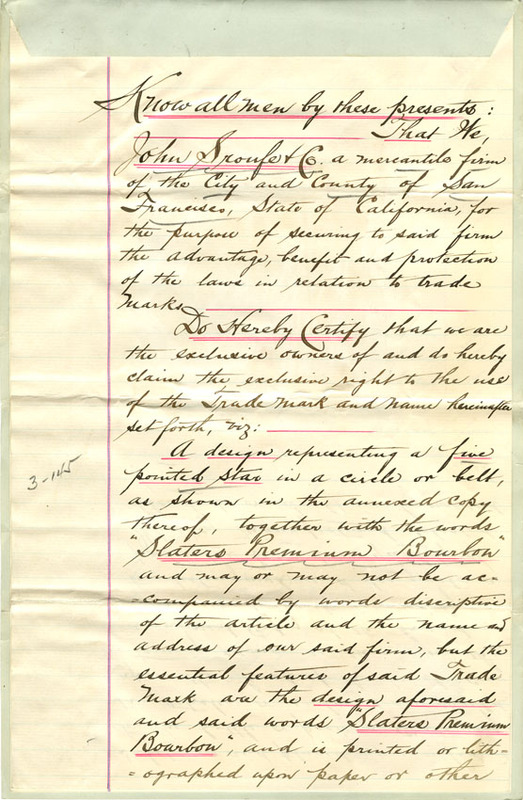 Know all men by these presents:
That We,
John Sroufe & Co. a mercantile firm
of the City and County of San
Francisco, State of California, for
the purpose of securing to said firm
the advantage, benefit and protection
of the laws in relation to trade
Marks
Do Hereby Certify that we are
the exclusive owners of and do hereby
claim the exclusive right to the use
of the Trade Mark and Name hereinafter
set forth, viz:
A design representing a five
pointed star in a circle or belt,
as shown in the annexed copy
thereof, together with the words
"Slaters Premium Bourbon"
and may or may not be ac-
-companied by words discriptive
of the article and the name and
address of our said firm, but the
essential features of said Trade
Mark are the design aforesaid
and said words "Slaters Premium
Bourbon", and is printed or lith-
-ographed upon paper or other